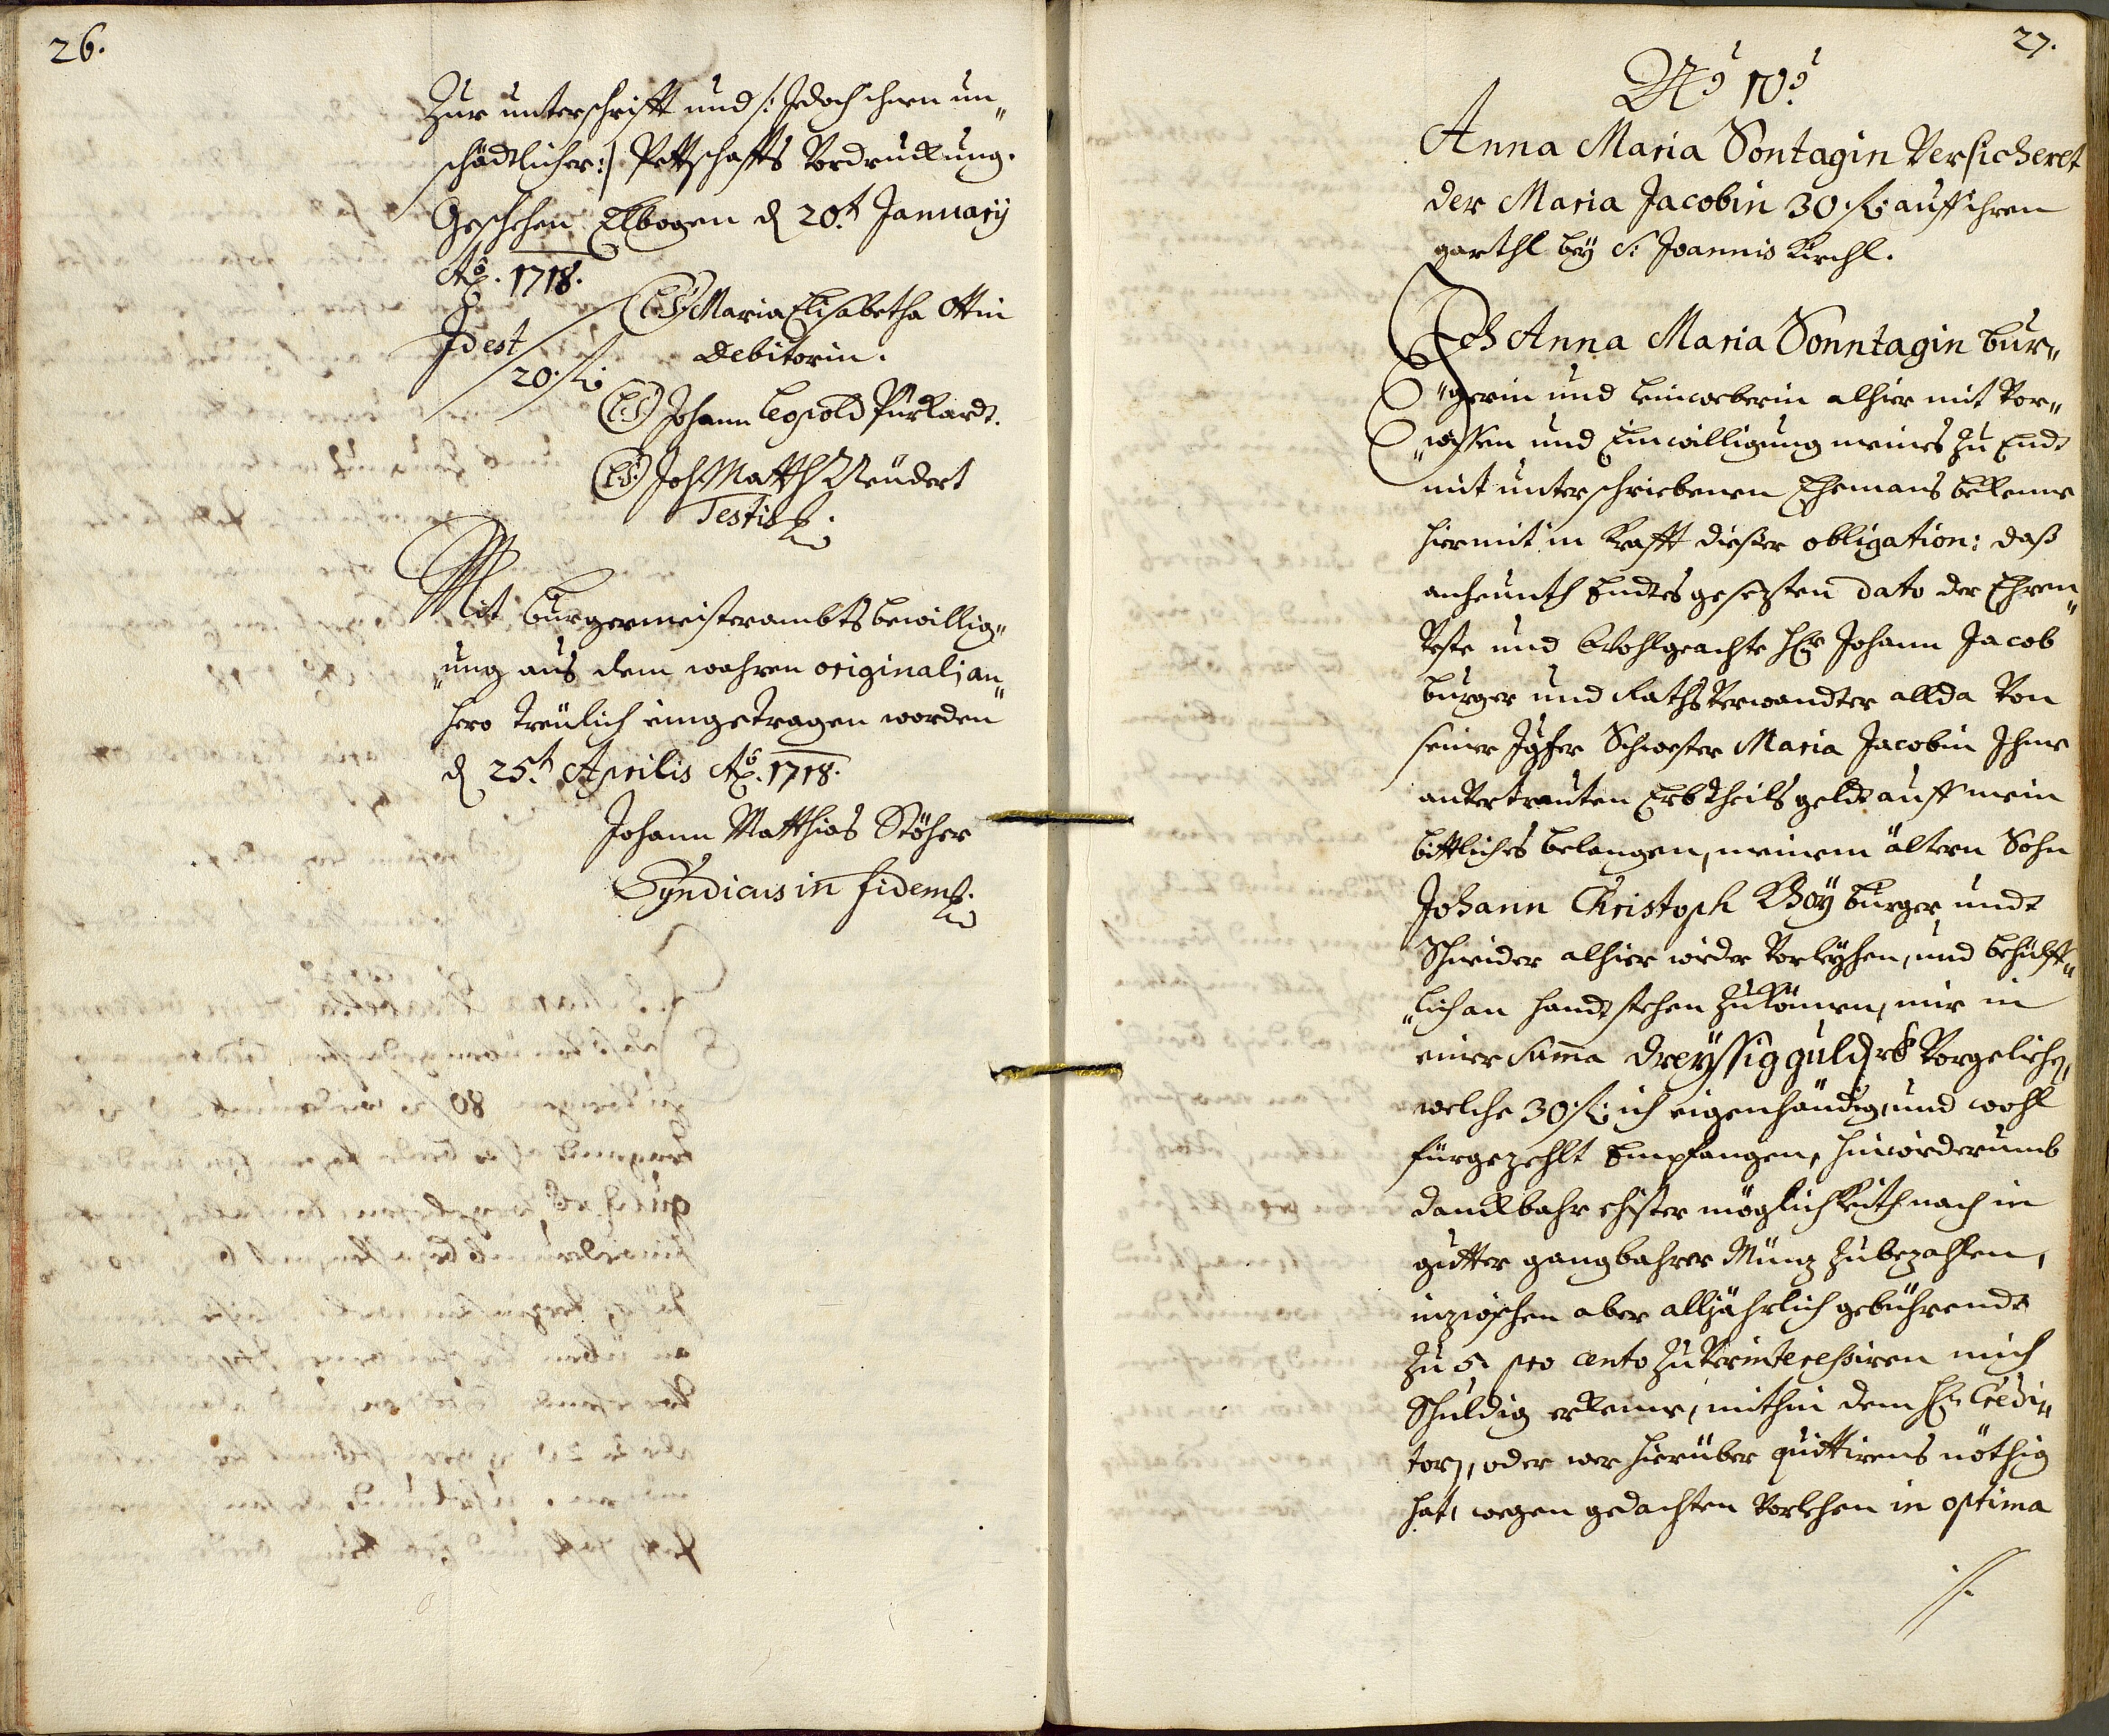 26.
Zur unterschrifft und /: Jedoch ihnen un„
schädtlicher :/ Pettschaffts Vordruckung.
Geschehen Elbogen d 20.t January
Aõ. 1718.
(LS) Maria Elisabetha Ottin
Debitorin.
Id est
20 fl.
(LS) Johann Leopold Pürkardt.
(LS) Joh Matth Neudert
Testis
Mit burgermeisterambts bewillig„
„ung aus dem wahren originali an„
hero treulich eingetragen worden
d 25.t Aprilis Aõ. 1718.
Johann Matthias Stöhr
Syndicus in fidem
27.
No 10o
Anna Maria Sontagin Versicheret
der Maria Jacobin 30 fl. auff ihren
garthl bey S: Joannis Kirchl.
Ich Anna Maria Sonntagin bur„
„gerin und Leinweberin alhier mit Vor„
„wissen und Einwilligung meines zu Endt
mit unterschriebenen Ehemans bekenne
hiermit in Krafft dieser obligation: daß
anheunth Endtes gesezten dato der Ehren„
Veste und Wohlgeachte Herr Johann Jacob
burger und Raths Verwandter allda Von
seiner Jgfer Schwester Maria Jacobin Ihme
anvertrauten Erbtheils geldt auff mein
bittliches belangen, meinem ältern Sohn
Johann Christoph Boÿ burger undt
Schneider alhier wieder Vorleyhen, und behülff„
„lich an handt stehen zu können, mir in
einer Suma dreyssig guld rh Vorgeliehen,
welche 30 fl. ich eigenhändig, und wohl
fürgezehlt Empfangen, hinwiderumb
danckbahr ehister möglichkeith nach in
gutter gangbahrer Müntz zubezahlen,
inzwischen aber alljährlich gebührendt
zu 5 pro cento zu Verinteressiren mich
Schuldig erkenne, mithin dem H. Credi„
tori, oder wer hierüber quittirens nöthig
hat, wegen gedachten Vorlehen in optima
./.